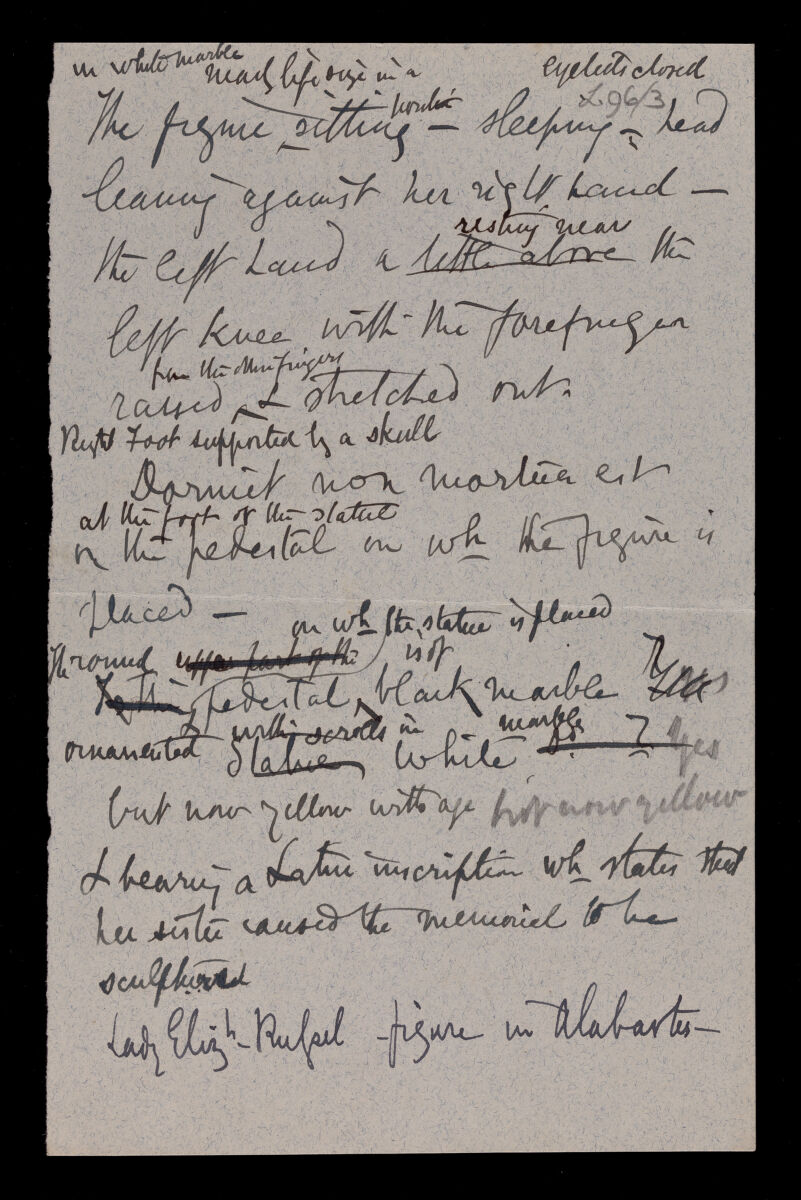 in white marble nearly life size in a eyelids closed
L.96/3
position
The figure sitting – sleeping – head
leaning against her right hand –
resting near
the left hand a little above the
left knee with the forefinger
from the other fingers
raised & stretched out.
Right Foot supported by a skull
Dormit non mortua est
at the foot of the statue
on the pedestal on wh the figure is
placed –
on wh the statue is placed
The round upper part of the is of
pedestal, black marble ? Yes
ornamented with scrolls in marble
Statue white Do. ? Yes
but now yellow with age but now yellow
& bearing a Latin inscription wh states that
her sister caused the memorial to be
sculptured
Lady Elizh. Russel – figure in Alabaster –